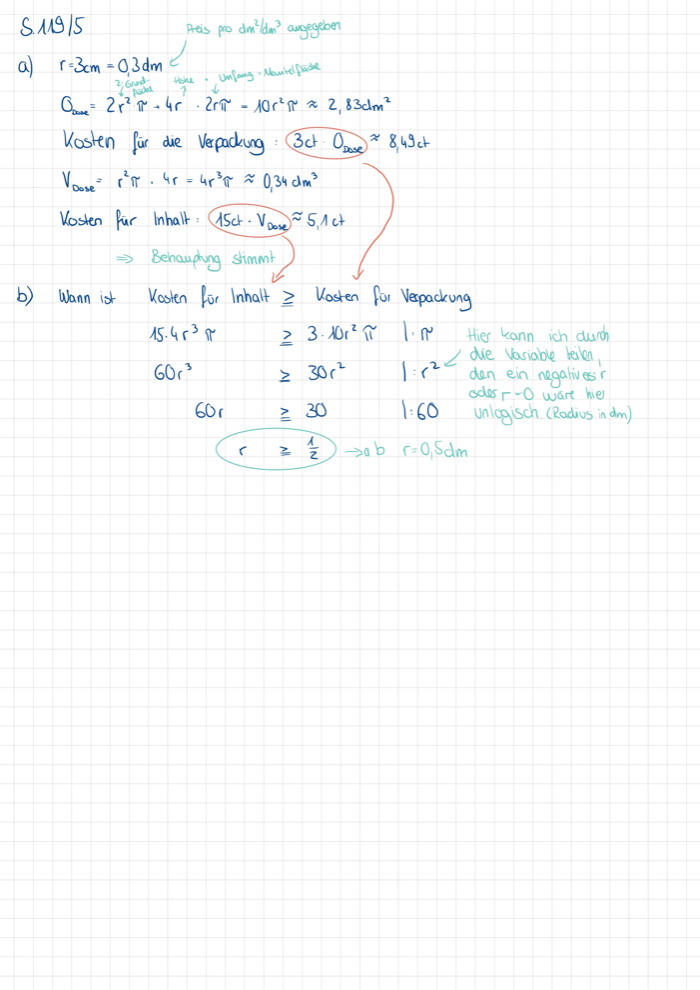 S.119/5
Preis pro dm²/dm³ angegeben
a) r=3cm = 0,3dm
2·Grundfläche Höhe · Umfang = Mantelfläche
O_Dose = 2r²π + 4r · 2rπ = 10r²π ≈ 2,83dm²
Kosten für die Verpackung: 3ct · O_Dose ≈ 8,49ct
V_Dose = r²π · 4r = 4r³π ≈ 0,34 dm³
Kosten für Inhalt: 15ct · V_Dose ≈ 5,1ct
⇒ Behauptung stimmt
b) Wann ist Kosten für Inhalt ≥ Kosten für Verpackung
15·4r³π ≥ 3·10r²π |·π
60r³ ≥ 30r² |:r²
60r ≥ 30 |:60
r ≥ 1/2 → ab r=0,5dm
Hier kann ich durch
die Variable teilen,
den ein negatives r
oder r=0 wäre hier
unlogisch. (Radius in dm)